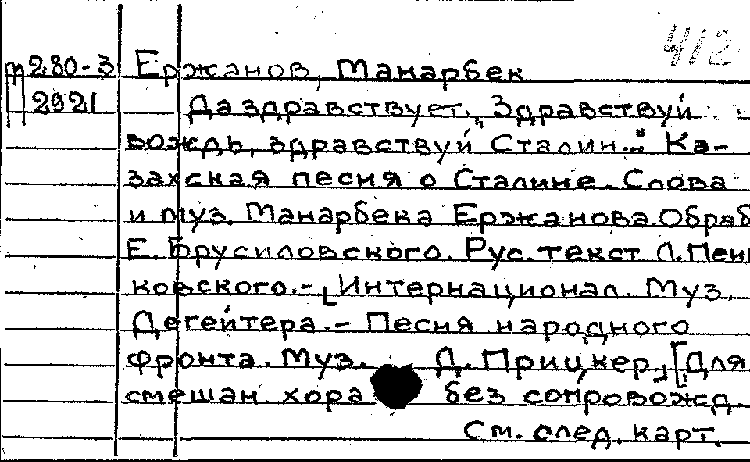 412
т280-3 Ержанов, Манарбек
2921 Да здравствует. „Здравствуй
вождь, здравствуй Сталин..." Ка-
захская песня о Сталине. Слова
и муз. Манарбека Ержанова. Обраб
Е. Брусиловского. Рус. текст Л. Пень
ковского.- [Интернационал. Муз.
Дегейтера.- Песня народного
фронта. Муз. Д. Прицкер.] [Для
смешан хора без сопровожд.
См. след. карт.